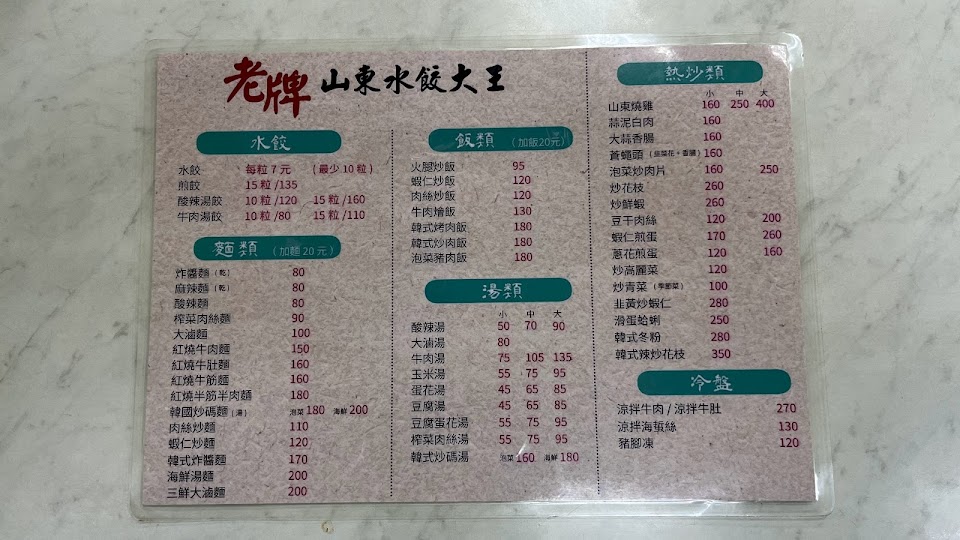 老牌 山東水餃大王
水餃
水餃 每粒 7 元 (最少 10 粒)
煎餃 15 粒 /135
酸辣湯餃 10 粒 /120 15 粒 /160
牛肉湯餃 10 粒 /80 15 粒 /110
麵類 (加麵 20 元)
炸醬麵 (乾) 80
麻辣麵 (乾) 80
酸辣麵 80
榨菜肉絲麵 90
大滷麵 100
紅燒牛肉麵 150
紅燒牛肚麵 160
紅燒牛筋麵 160
紅燒半筋半肉麵 180
韓國炒碼麵 (湯) 泡菜 180 海鮮 200
肉絲炒麵 110
蝦仁炒麵 120
韓式炸醬麵 170
海鮮湯麵 200
三鮮大滷麵 200
飯類 (加飯20元)
火腿炒飯 95
蝦仁炒飯 120
肉絲炒飯 120
牛肉燴飯 130
韓式烤肉飯 180
韓式炒肉飯 180
泡菜豬肉飯 180
湯類
小 中 大
酸辣湯 50 70 90
大滷湯 80
牛肉湯 75 105 135
玉米湯 55 75 95
蛋花湯 45 65 85
豆腐湯 45 65 85
豆腐蛋花湯 55 75 95
榨菜肉絲湯 55 75 95
韓式炒碼湯 泡菜 160 海鮮 180
熱炒類
小 中 大
山東燒雞 160 250 400
蒜泥白肉 160
大蒜香腸 160
蒼蠅頭 (韭菜花+香腸) 160
泡菜炒肉片 160 250
炒花枝 260
炒鮮蝦 260
豆干肉絲 120 200
蝦仁煎蛋 170 260
蔥花煎蛋 120 160
炒高麗菜 120
炒青菜 (季節菜) 100
韭黃炒蝦仁 280
滑蛋蛤蜊 250
韓式冬粉 280
韓式辣炒花枝 350
冷盤
涼拌牛肉 / 涼拌牛肚 270
涼拌海蜇絲 130
豬腳凍 120